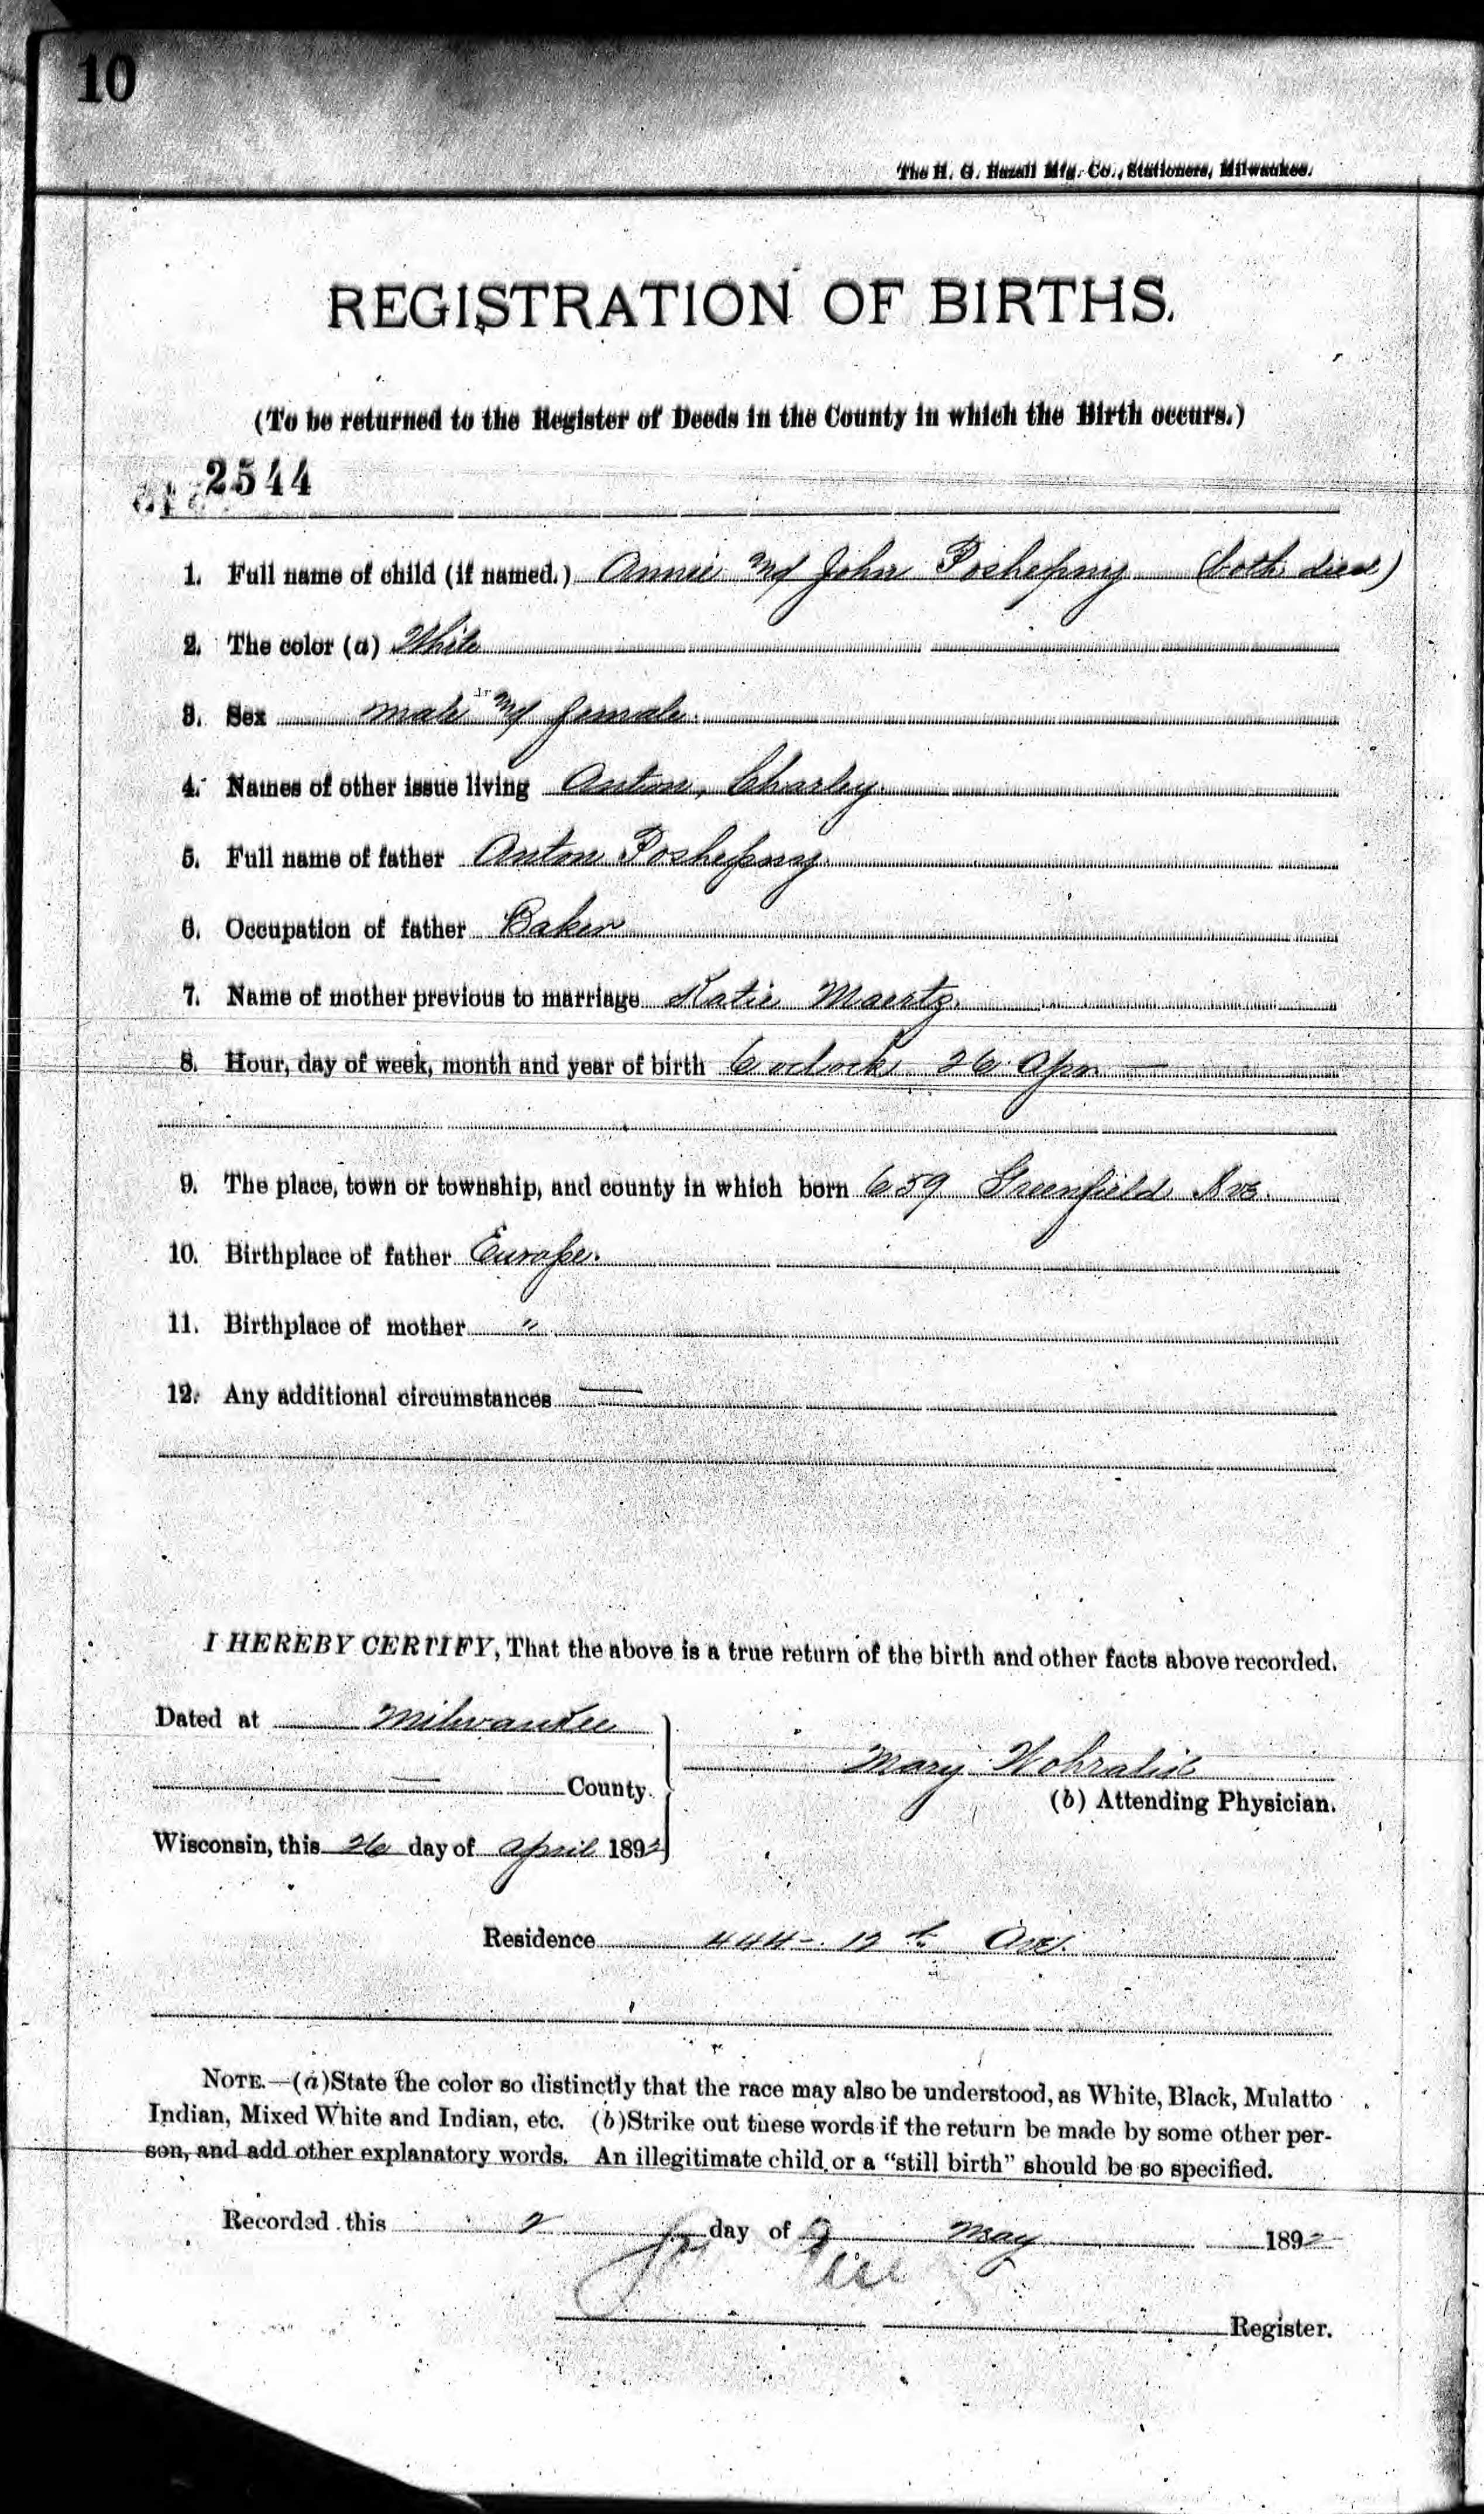 10
The H. G. Razall Mfg. Co., Stationers, Milwaukee.
REGISTRATION OF BIRTHS.
(To be returned to the Register of Deeds in the County in which the Birth occurs.)
2544
1. Full name of child (if named.) Annie and John Poshepny (both died)
2. The color (a) White
3. Sex male and female
4. Names of other issue living Anton, Charley
5. Full name of father Anton Poshepny
6. Occupation of father Baker
7. Name of mother previous to marriage Katie Maertz
8. Hour, day of week, month and year of birth 6 oclock 26 Apr. —
9. The place, town or township, and county in which born 659 Greenfield Ave.
10. Birthplace of father Europe.
11. Birthplace of mother "
12. Any additional circumstances —
I HEREBY CERTIFY, That the above is a true return of the birth and other facts above recorded.
Dated at Milwaukee
Mary Wohralik
— County.
(b) Attending Physician.
Wisconsin, this 26 day of April 1892
Residence 444 - 12th Ave.
NOTE.—(a) State the color so distinctly that the race may also be understood, as White, Black, Mulatto
Indian, Mixed White and Indian, etc. (b) Strike out these words if the return be made by some other per-
son, and add other explanatory words. An illegitimate child or a "still birth" should be so specified.
Recorded this 2 day of May 1892
Register.